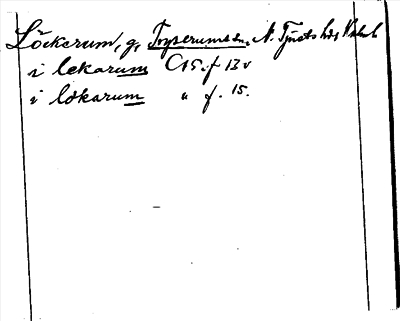 Löckerum, g, Torserums sn, N. Tjusts hd, Kalm. l
i lekarum C15 f 13 v
i lökarum " f. 15.